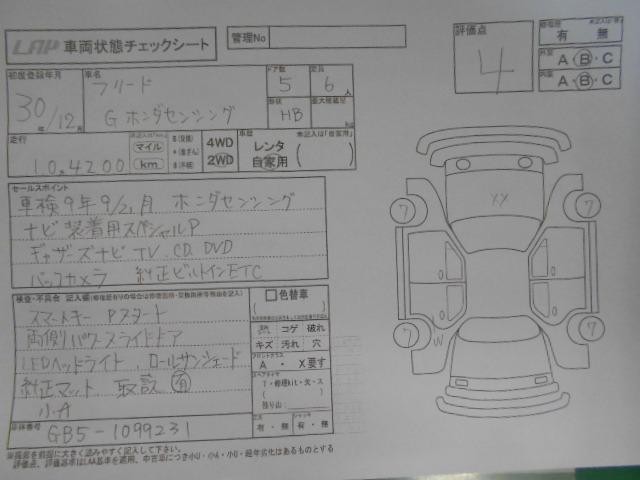 LAP 車両状態チェックシート
管理No
評価点
4
修復歴
有 無
外装 A B C
内装 A B C
初度登録年月
30年/12月
車名
フリード
G ホンダセンシング
ドア数
5
定員
6人
形状
HB
最大積載量
kg
走行
10,4200
マイル
km
4WD
2WD
車歴
レンタ
自家用
未記入は「自家用」
セールスポイント
車検9年9/2,月 ホンダセンシング
ナビ装着用スペシャルP
ギャザーズナビ TV CD DVD
バックカメラ 純正ビルトインETC
検査・不具合 記入欄
スマートキー Pスタート
両側パワースライドドア
LEDヘッドライト、ロールサンシェード
純正マット 取説 有
小A
□色替車
コゲ 破れ
キズ 汚れ 穴
フロントガラス
A ・ X要す
スペアタイヤ
T・修理kit・欠・ス
残り山:
有・無 有・無
車体番号
GB5-1099231
XX
7
7
7
7
W